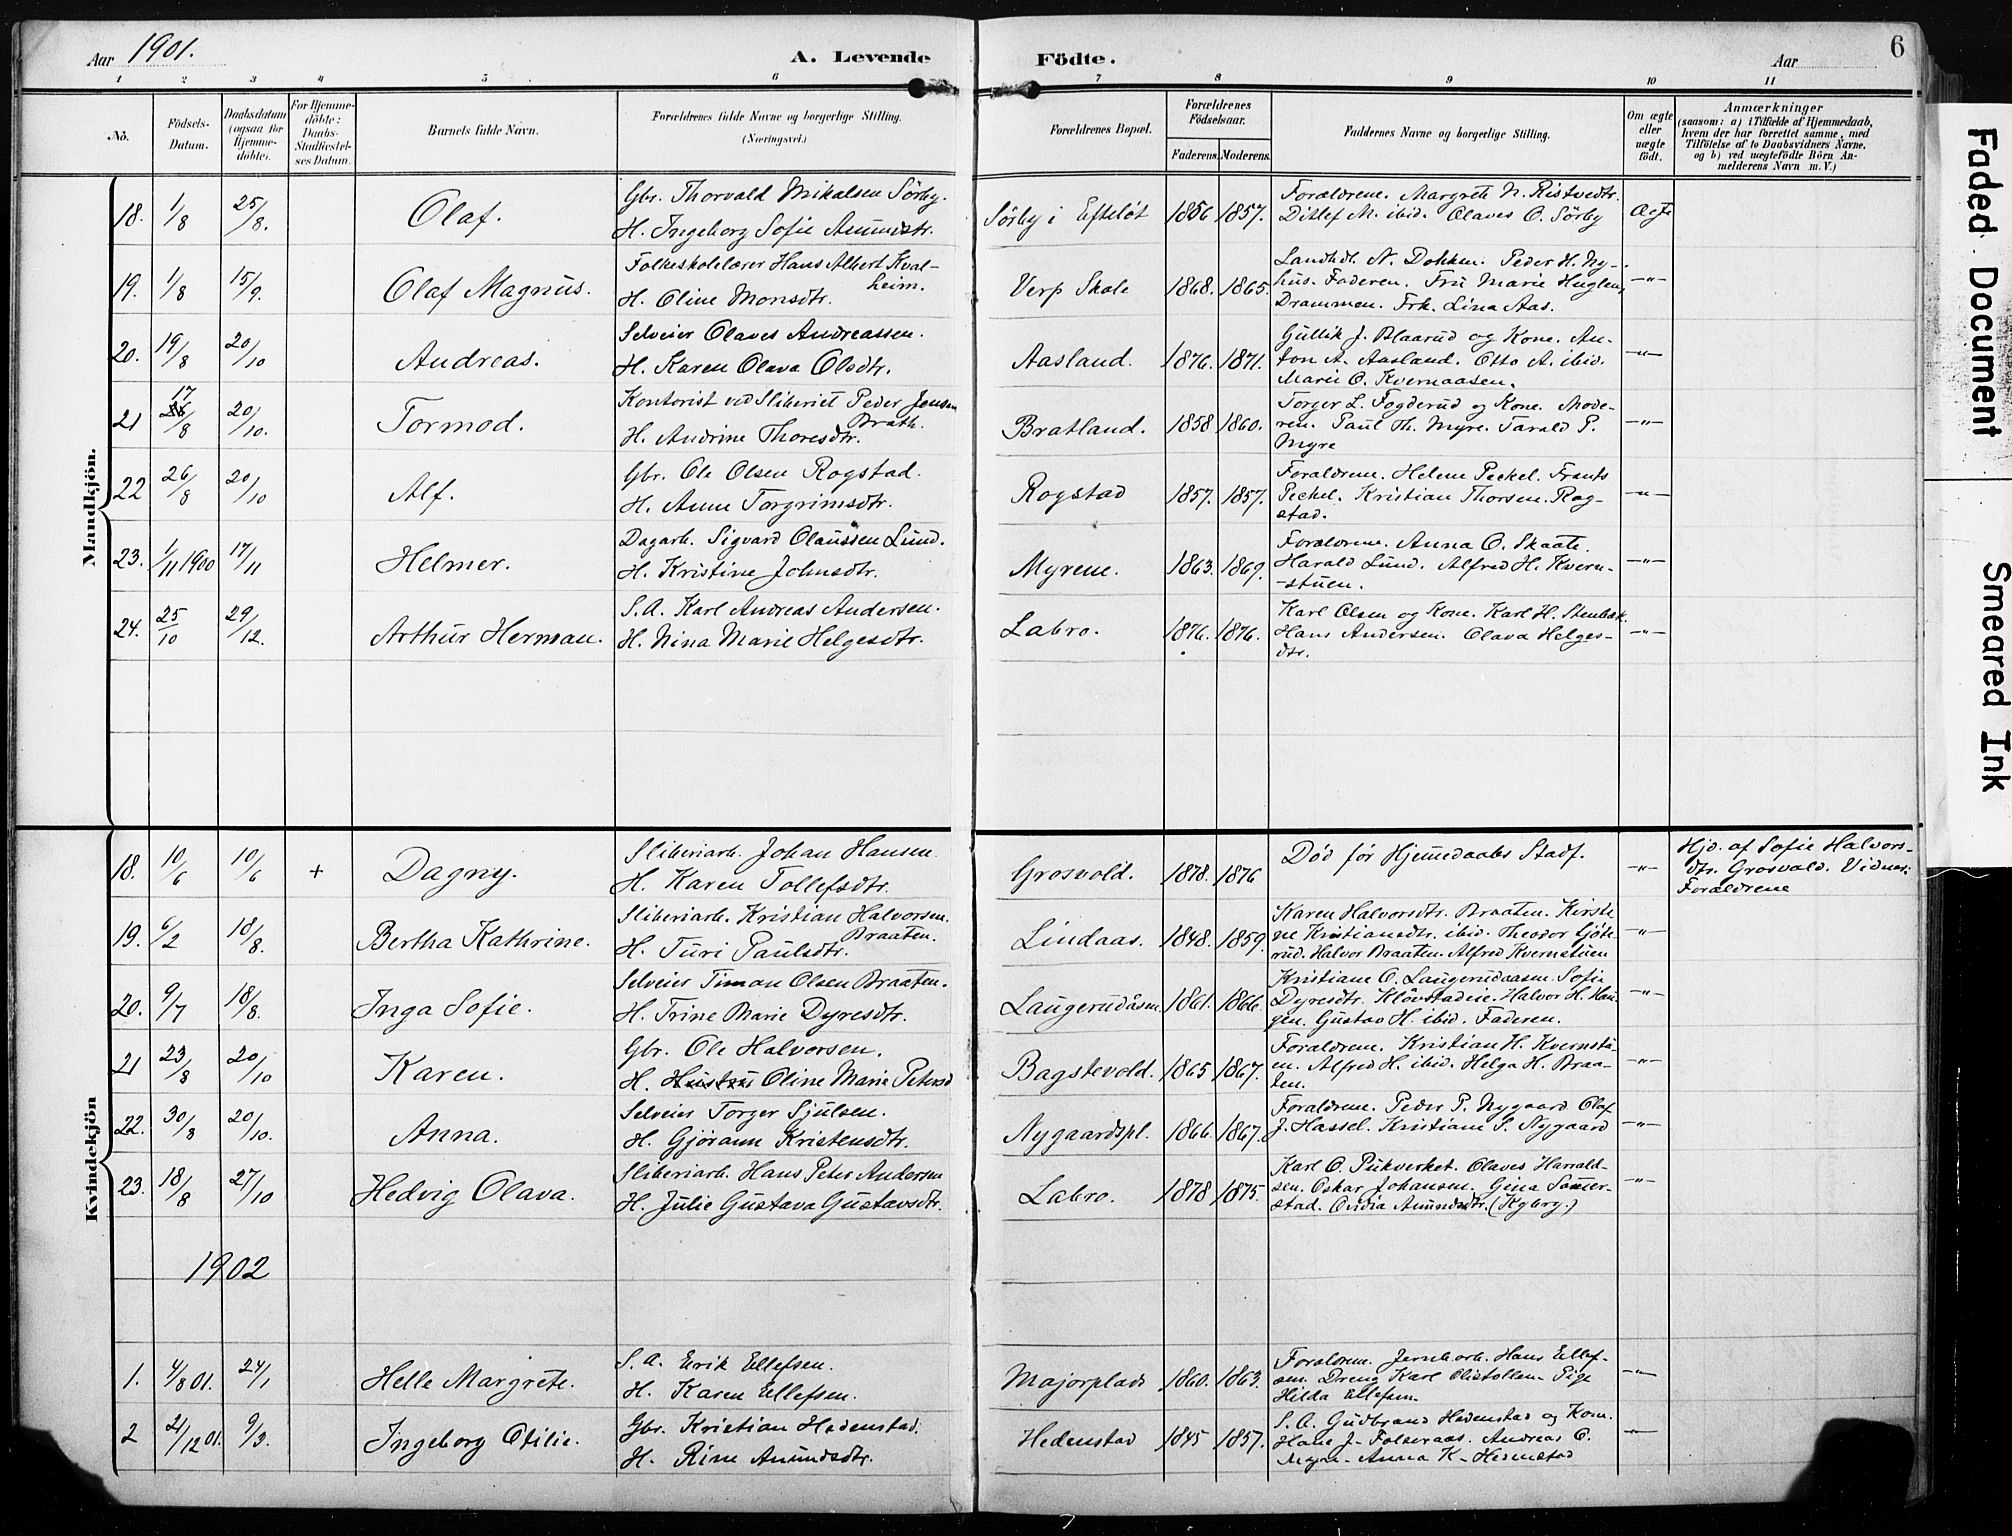 Aar 1901. A. Levende Födte. Aar 6
1 2 3 4 5 6 7 8 9 10 11
No. Födsels-Datum. Daabsdatum (ogsaa for Hjemmedöbte). For Hjemmedöbte: Daabs-Stadfæstelses Datum. Barnets fulde Navn. Forældrenes fulde Navne og borgerlige Stilling. (Næringsvei.) Forældrenes Bopæl. Forældrenes Födselsaar. Faderens. Moderens. Faddernes Navne og borgerlige Stilling. Om ægte eller uægte födt. Anmærkninger (saasom: a) i Tilfælde af Hjemmedaab, hvem der har forrettet samme, med Tilföielse af to Daabsvidners Navne, og b) ved uægtefödte Börn Anmelderens Navn m. V.)
Mandkjön.
18. 1/8 25/8. Olaf. Gbr. Thorvald Mikalsen Sörby.
H. Ingeborg Sofie Amundstr. Sörby i Efteløt 1856 1857. Forældrene. Margrete N. Ristvedtr.
Ditlef M. ibid. Olaves O. Sörby Ægte
19. 1/8 15/9. Olaf Magnus. Folkeskolelærer Hans Albert Kval-
heim.
H. Oline Monsdtr. Verp Skole 1868. 1865. Landhdl. N. Dokken. Peder H. Ny-
hus. Faderen. Fru Marie Huglen,
Drammen. Frk. Lina Aas. -"-
20. 19/8 20/10 Andreas. Selveier Olaves Andreassen.
H. Karen Olava Olsdtr. Aasland. 1876. 1871. Gullik J. Blaarud og Kone. An-
ton A. Aasland. Otto A. ibid.
Marie O. Kvernaasen. -"-
21 17/8 20/10. Tormod. Kontorist ved Sliberiet Peder Jensen
Brath.
H. Andrine Thoresdtr. Bratland. 1858 1860. Torger L. Fogderud og Kone. Mode-
ren. Paul Th. Myre. Tarald P.
Myre -"-
22 26/8 20/10 Alf. Gbr. Ole Olsen Rogstad.
H. Anne Torgrimsdtr. Rogstad 1857. 1857. Forældrene. Helene Peckel. Frants
Peckel. Kristian Thorsen. Rog-
stad. -"-
23. 1/11 1900 17/11 Helmer. Dagarb. Sigvard Olaussen Lund.
H. Kristine Johnsdtr. Myrene. 1863. 1869. Forældrene. Anna O. Skaate.
Harald Lund. Alfred H. Kvern-
-stuen. -"-
24. 25/10 29/12. Arthur Herman. S.A. Karl Andreas Andersen.
H. Nina Marie Helgesdtr. Labro. 1876. 1876. Karl Olsen og Kone. Karl H. Stenbæk.
Hans Andersen. Olava Helges-
dtr. -"-
Kvindekjön
18. 10/6 10/6 + Dagny. Sliberiarb. Johan Hansen.
H. Karen Tollefsdtr. Grosvold. 1878. 1876 Død før Hjemmedaabs Stadf. -"- Hjd. af Sofie Halvors-
dtr. Grosvald. Vidner:
Forældrene
19. 6/2 18/8. Bertha Kathrine. Sliberiarb. Kristian Halvorsen.
Braaten.
H. Turi Paulsdtr. Lindaas. 1848. 1859. Karen Halvorsdtr. Braaten. Kirsti-
ne Kristiansdtr. ibid. Theodor Gjöte-
rud. Halvor Braaten. Alfred Kvernstuen -"-
20. 9/7 18/8. Inga Sofie. Selveier Timan Olsen Braaten.
H. Trine Marie Dyresdtr. Laugerudåsen 1861. 1866. Kristiane O. Laugerudaasen. Sofie
Dyresdtr. Klövstadeie. Halvor H. Hau-
gen. Gustav H. ibid. Faderen. -"-
21 23/8 20/10 Karen. Gbr. Ole Halvorsen.
H. Hustru Oline Marie Petersd Bagstevold. 1865 1867. Forældrene. Kristian H. Kvernstu-
en. Alfred H. ibid. Helga H. Braa-
ten. -"-
22. 30/8 20/10. Anna. Selveier Torger Sjulsen.
H. Gjörann Kristensdtr. Nygaardspl. 1866. 1867. Forældrene. Peder P. Nygaard. Olaf
J. Hassel. Kristiane S. Nygaard -"-
23. 18/8 27/10 Hedvig Olava. Sliberiarb. Hans Peter Andersen
H. Julie Gustava Gustavsdtr. Labro. 1878 1875. Karl O. Pukverket. Olaves Harrald-
sen. Oskar Johansen. Gina Somer-
stad. Ovidia Amundsdtr. (Kyberg.) -"-
1902
1. 4/8 01. 24/1 Helle Margrete. S.A. Erik Ellefsen.
H. Karen Ellefsen. Majorplads 1860. 1863. Forældrene. Jernbarb. Hans Ellef-
sen. Dreng Karl Olistollen. Pige
Hilda Ellefsen -"-
2 21/12 01. 9/3. Ingeborg Otilie. Gbr. Kristian Hedenstad.
H. Rine Amundsdtr. Hedenstad 1845 1857. S.A. Gudbrand Hedenstad og Kone.
Hans J. Folseraas. Andreas O.
Myra. Anna K. Hedenstad -"-
Faded Document
Smeared Ink